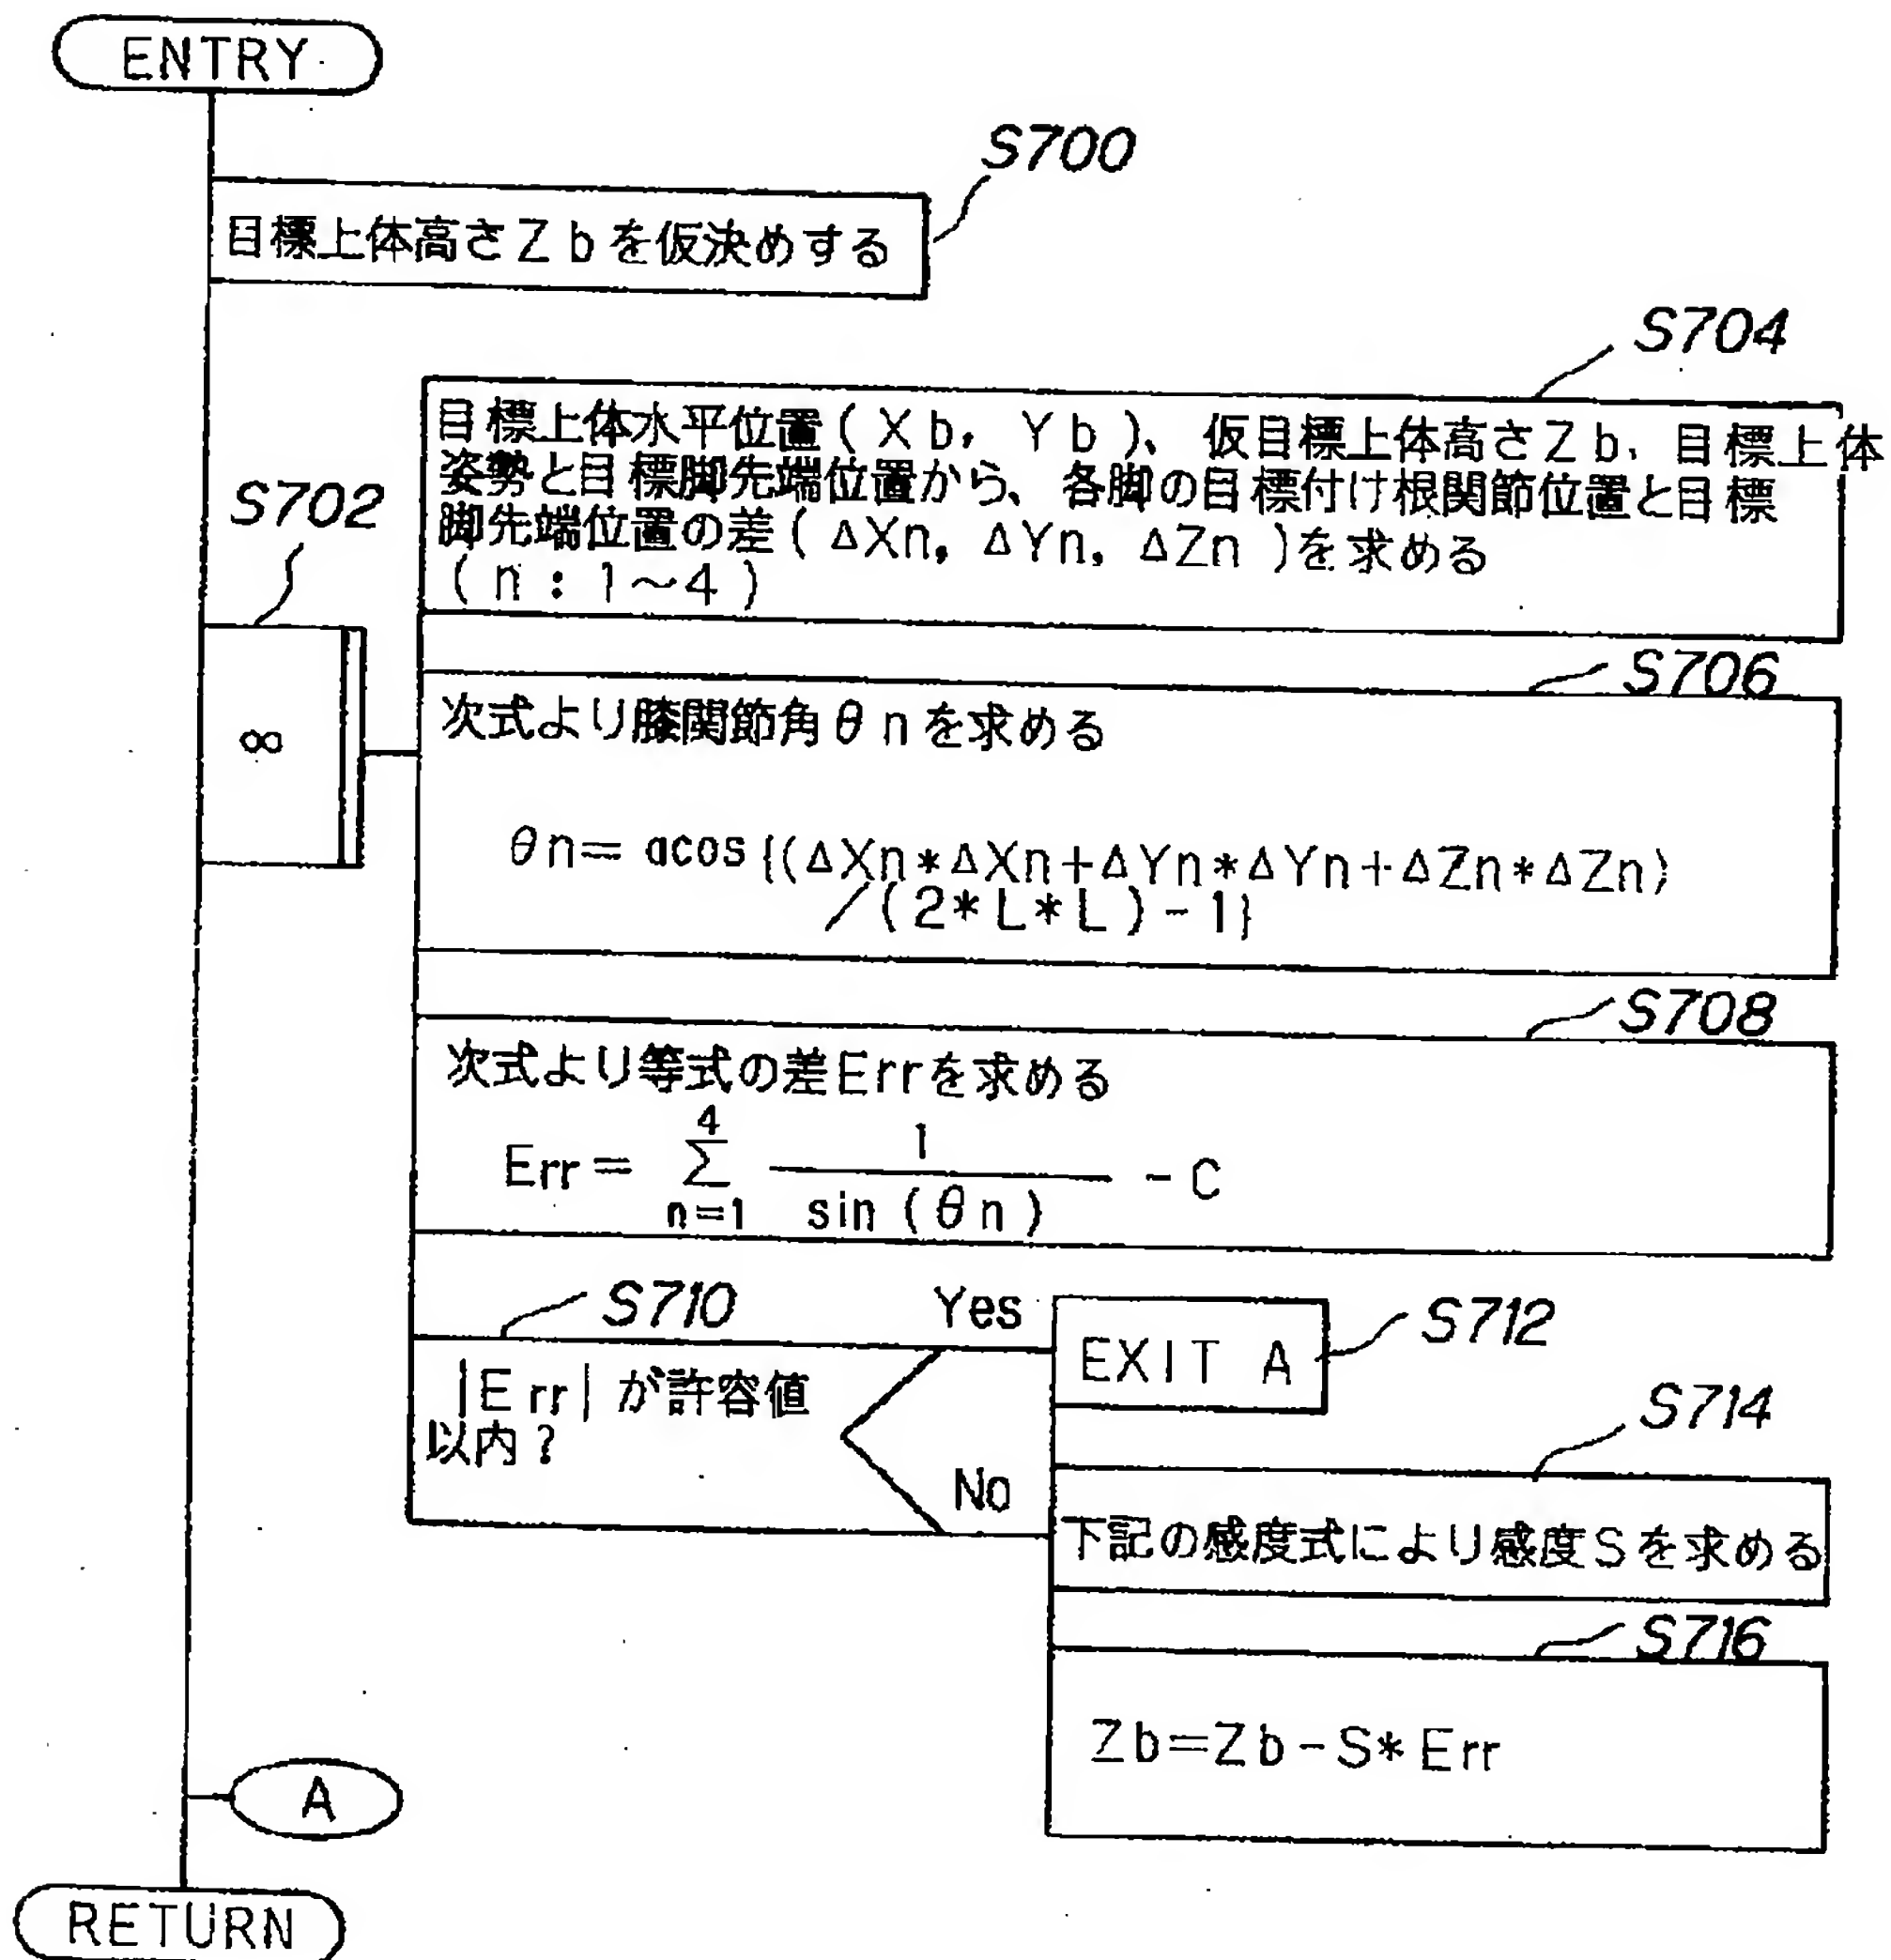 ENTRY
S700
目標上体高さZbを仮決めする
S704
目標上体水平位置(Xb, Yb)、仮目標上体高さZb、目標上体
姿勢と目標脚先端位置から、各脚の目標付け根関節位置と目標
脚先端位置の差(ΔXn, ΔYn, ΔZn)を求める
(n:1~4)
S702
∞
S706
次式より膝関節角θnを求める
θn=acos{(ΔXn*ΔXn+ΔYn*ΔYn+ΔZn*ΔZn)
/(2*L*L)-1}
S708
次式より等式の差Errを求める
Err= 4 Σ n=1 1 / sin(θn) -C
S710
|Err|が許容値
以内?
Yes
EXIT A
S712
No
S714
下記の感度式により感度Sを求める
S716
Zb=Zb-S*Err
A
RETURN